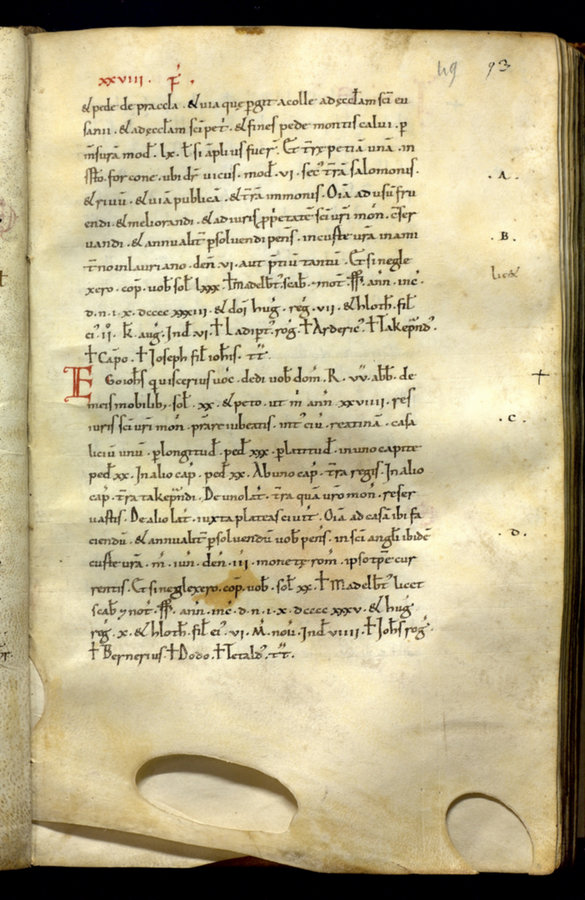 49 93
xxviii. P̄.
& pede de praccla. & uia quę pgit acolle adęccłam sc̄i eu
sanii. & adęccłam sc̄i pet̄. & fines pede montis calui. p
m̄surā mod̄. lx. t̄ si aplius fuer̄. Et t̄rx petiā una. in
ss̄to. forcone. ubi dr̄ uicus. mod̄. vi. sec̄ t̄rā salomonis.
& riuū. & uiā publicā. & t̄rā immonis. Oīa ad usū fru
endi. & meliorandi. & ad iuris ppetatē sc̄i ur̄i mon̄. c̄ser
uandi. & annualit̄ psoluendi pens̄. incuste ur̄a in ami
t̄no uilauriano. den̄. vi. aut p̄tiū tantū. Et si negle
xero. cop̄. uob̄ sol̄ lxxx. † Madelbt̄ scab̄. & not̄. ss̄. ann̄. inc̄.
d. n. i. x. dcccc xxxiii. & dōi huḡ. reḡ. vii. & hloth̄. fil̄
ei᾿. ii. k̄. auḡ. Ind̄. vi. † Ladipt̄. roḡ. † Arderic᾿. † Takepn̄d᾿.
† Capo. † Ioseph fil̄ ioh̄is. t̄t̄.
Ego ioh̄s quiscerius uoc̄. dedi uob̄ dom̄. R. uū. abb̄. de
meis mobilib; sol̄. xx. & peto. ut m̄. ann̄. xxviiii. res
iuris sc̄i ur̄i mon̄. prare iubeatis. int̄ ciū. reatinā. casa
liciū unū. p longitud̄. ped̄. xxx. p latitud̄. in uno capite
ped̄. xx. In alio cap̄. ped̄. xx. Ab uno cap̄. t̄ra regis. In alio
cap̄. t̄ra takepn̄di. De uno lat̄. t̄ra quā ur̄o mon̄. reser
uastis. De alio lat̄. iuxta plateā ciuit̄. Oīa. ad casā ibi fa
ciendū. & annualit̄ psoluendū uob̄ pens̄. in sc̄i angli ibidē
custe ur̄a. m̄. iun̄. den̄. iii. monetę rom̄. ipso tp̄e cur
rentis. Et si neglexero. cop̄. uob̄. sol̄. xx. † Madelbt̄ licet
scab̄. & not̄. ss̄. ann̄. inc̄. d. n. i. x. dcccc xxxv. & huḡ
reḡ. x. & hloth̄. fil̄ ei᾿. vi. M̄. nou̅. Ind̄. viiii. † Ioh̄s roḡ.
† Bernerius. † Dodo. † Letald᾿. t̄t̄.
. A.
B.
licet
. C.
. D.